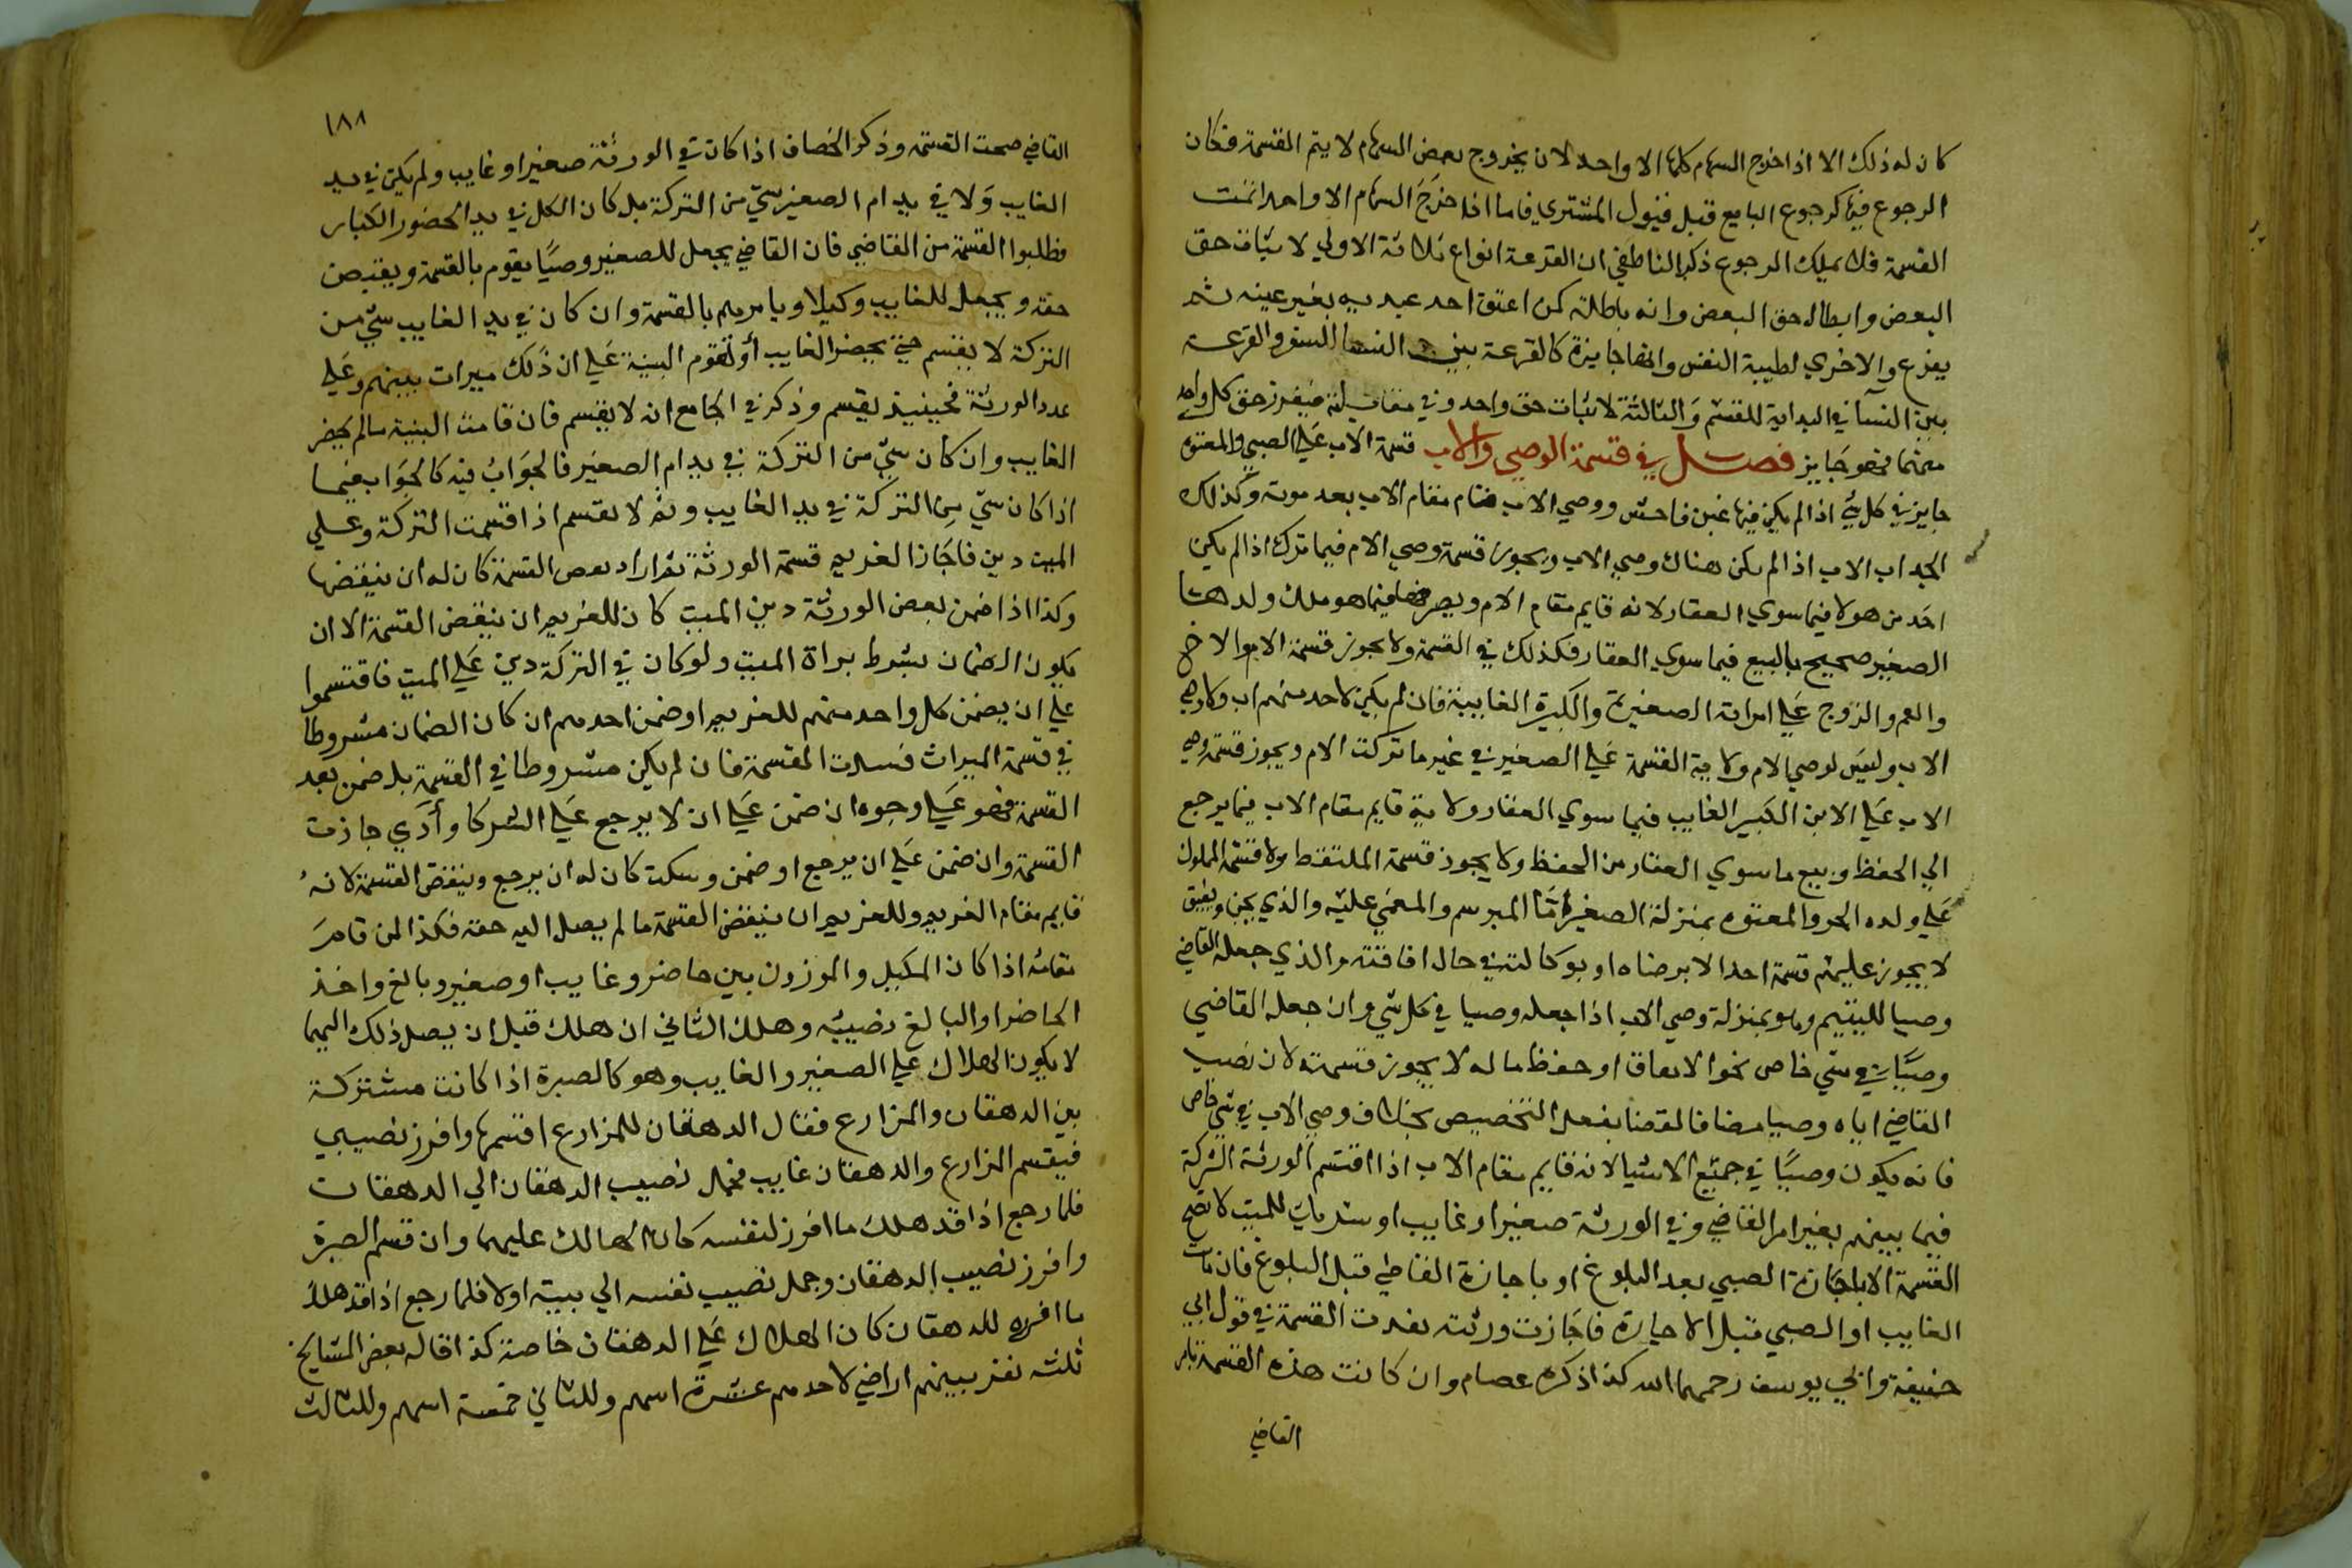 كان له ذلك الا اذا خرج السهام كلها الا واحد لان بخروج بعض السهام لا يتم القسمة فكان
الرجوع فيها كرجوع البايع قبل قبول المشتري فاما اذا خرَجَ السهام الا واحد اتمت
القسمة فلا يملك الرجوع ذكر الناطفي ان القرعة انواع ثلاثة الاولي لاثبات حق
البعض وابطال حق البعض وانه باطلة كمن اعتق احد عبديه بغير عينه ثم
يقرع والاخري لطيبة النفس وانها جايزة كالقرعة بين النسا للسفر والقرعة
بين النسآ في البداية للقسم وَالثالثة لاثبات حق واحد وفي مقابلته فيفرز حق كل واحد
منهما فهو جَايز فصل في قسمة الوصي والاب قسمة الاب عَلي الصبي والمعتوه
جايز في كل شئ اذا لم يكن فيها غبن فاحش ووصي الاب قام مقام الاب بعد موته وكذلك
الجد اب الاب اذا لم يكن هناك وصي الاب ويجوز قسمة وصي الام فيما ترك اذا لم يكن
احَد من هولا فيما سوي العقار لانه قايم مقام الام وتصرفها فيما هو ملك ولدها
الصغير صحيح بالبيع فيما سوي العقار فكذلك في القسمة ولا يجوز قسمة الام والاخ
والعم والزوج عَلي امراته الصغيرة والكبيرة الغايبة فان لم يكن لاحد منهم اب ولا وصي
الاب وليسَ لوصي الام ولاية القسمة عَلي الصغير في غير ما تركت الام ويجوز قسمة وصي
الاب عَلي الابن الكَبير الغايب فيما سوي العقار ولاية قايم مقام الاب فيما يرجع
الي الحفظ وبيع ما سوي العقار من الحفظ ولا يجوز قسمة الملتقط ولا قسمة المملوك
عَلي ولده الحر والمعتوه بمنزلة الصغير امَّا المبرسم والمغمي عليْه والذي يجن ويفيق
لا يجوز عليهم قسمة احد الا برضاه او بوكالته في حال افاقته والذي جعله القاضي
وصيا لليتيم وهو بمنزلة وصي الاب اذا جعله وصيا في كل شي وان جعله القاضي
وصيًّا في شي خاص نحو الانفاق او حفظ ماله لا يجوز قسمته لان نصب
القاضي اياه وصيا مضافا لقضا بفعل التخصيص بخلاف وصي الاب في شي خاص
فانه يكون وصيًّا في جميْع الاشيا لانه قايم مقام الاب اذا اقتسم الورثة التركة
فيما بينهم بغير امر القاضي وفي الورثة صغير او غايب او شريك للميت لا تصح
القسمة الا باجَازة الصبي بعد البلوغ او باجازة القاضي قبل البلوغ فان مات
الغايب او الصبي قبل الاجازة فاجَازت ورثته نفدت القسمة في قول ابي
حنيفة وابي يوسف رحمهما الله كذا ذكره عصام وان كانت هذه القسمة بامر
القاضي
١٨٨
القاضي صحت القسمة وذكر الخصاف اذا كان في الورثة صغير او غايب ولم يكن في يد
الغايب وَلا في يد ام الصغير شي من التركة بل كان الكل في يد الحضور الكبار
وطلبوا القسمة من القاضي فان القاضي يجعل للصغير وصيًّا يقوم بالقسمة ويقبض
حقه ويجعل للغايب وكيلا ويامرهم بالقسمة وان كان في يد الغايب شي من
التركة لا يقسم حتي يحضر الغايب أو تقوم البينة عَلي ان ذَلك ميراث بينهم وعَلي
عدد الورثة فحينيذ يقسم وذكر في الجامع انه لا يقسم فان قامت البينة مالم يحضر
الغايب وان كان شي من التركة في يد ام الصغير فالجوَابُ فيه كالجوَاب فيما
اذا كان شي من التركة في يد الغايب وثم لا يقسم اذا اقتسمت التركة وعلي
الميت دين فاجَاز الغريم قسمة الورثة ثم اراد بعض القسمة كان له ان ينقضها
وكذا اذا ضمن بعض الورثة دين الميت كان للغريم ان ينقض القسمة الا ان
يكون الضمان بشرط براة الميت ولو كان في التركة دين عَلي الميت فاقتسموا
علي ان يضمن كل واحد منهم للغريم او ضمن احدهم ان كان الضمان مشروطا
في قسمة الميراث فسدت القسمة فان لم يكن مشروطا في القسمة بل ضمن بعد
القسمة فهو عَلي وجوه ان ضمن عَلي ان لا يرجع عَلي الشركا وأدَي جازت
القسمة وان ضمن عَلي ان يرجع او ضمن وسكت كان له ان يرجع وينقض القسمة لانهُ
قايم مقام الغريم وللغريم ان ينقض القسمة ما لم يصل اليه حقه فكذا لمن قامَ
مقامه اذا كان المكيل والموزون بين حاضر وغايب او صغير وبالغ واخذ
الحاضر او البالغ نصيبه وهلك الثاني ان هلك قبل ان يصل ذلك اليهما
لا يكون الهلاك علي الصغير والغايب وهو كالصبرة اذا كانت مشتركة
بين الدهقان والمزارع فقال الدهقان للمزارع اقسمها وافرز نصيبي
فيقسم المزارع والدهقان غايب فحمل نصيب الدهقان الي الدهقان
فلما رجع اذا قد هلك ما افرز لنفسه كان الهالك عليهما وان قسم الصبرة
وافرز نصيب الدهقان وحمل نصيب نفسه الي بيته اولا فلما رجع اذا قد هلك
ما افرزه للدهقان كان الهلاك عَلي الدهقان خاصة كذا قاله بعض المشايخ
ثلثة نفر بينهم اراضي لاحدهم عشرة اسهم وللثاني خمسة اسهم وللثالث